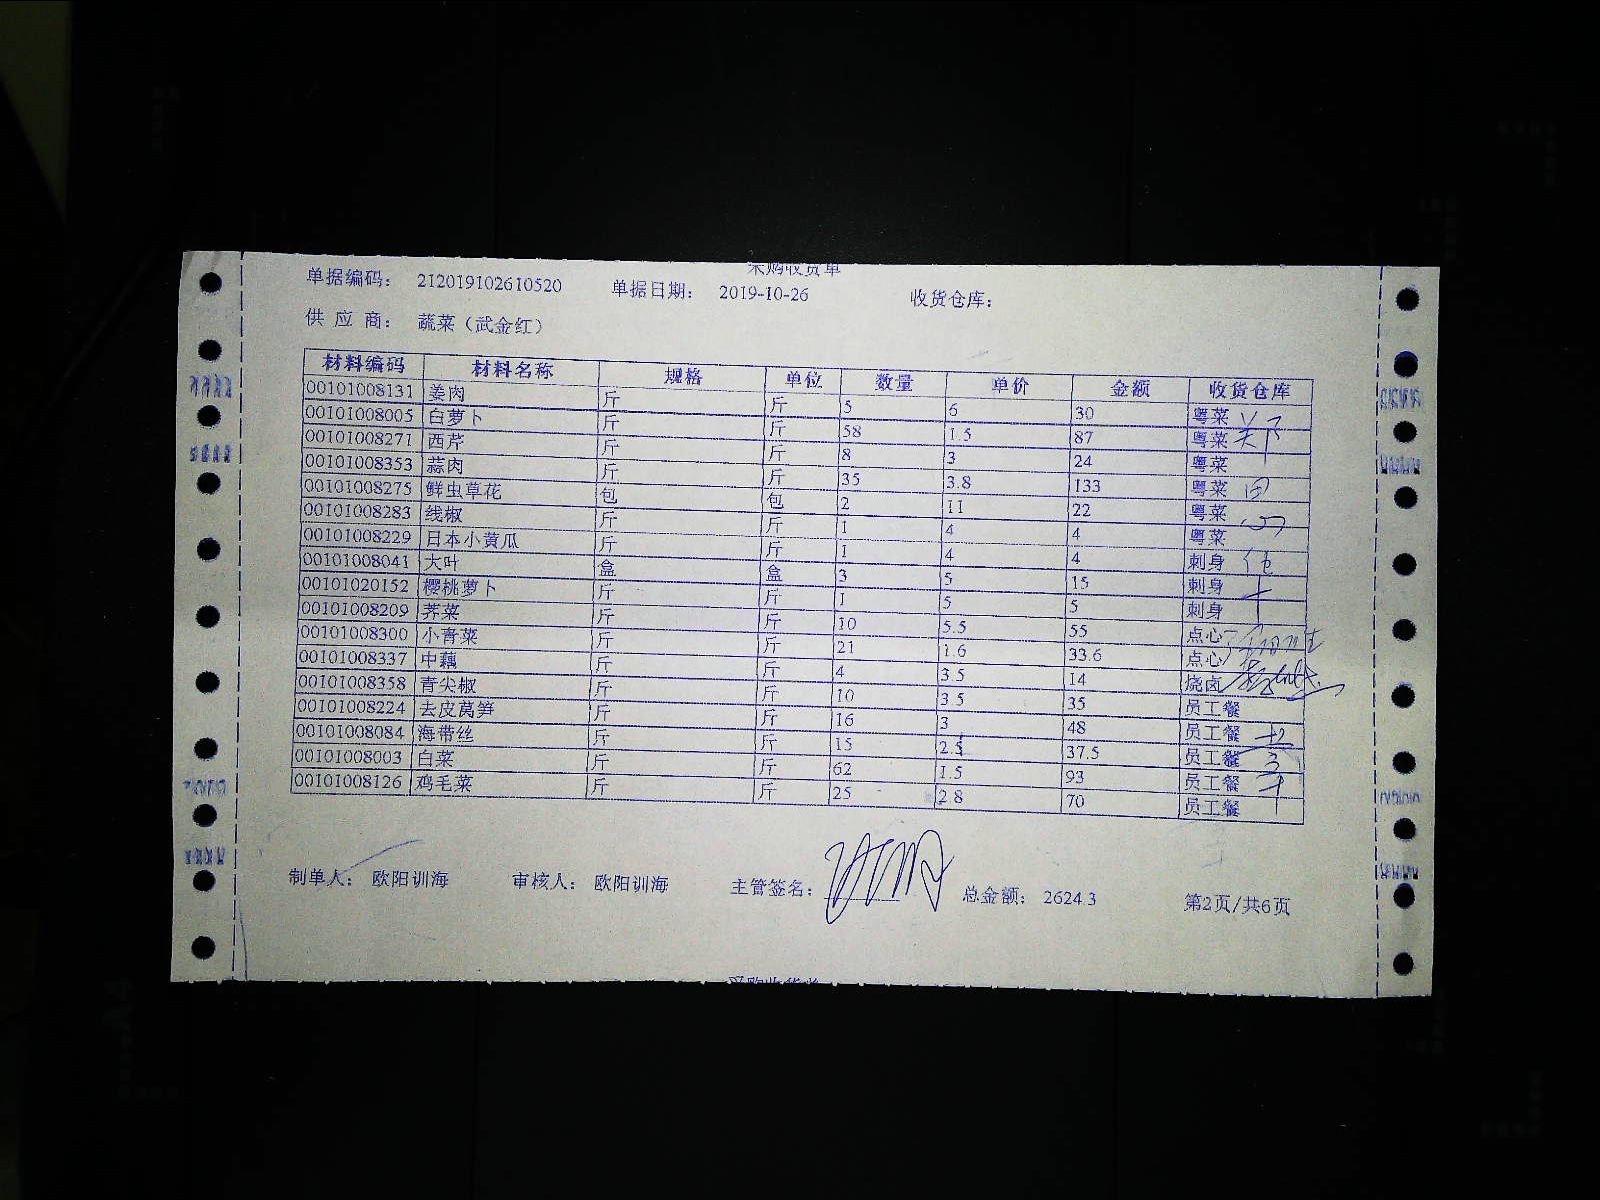 采购收货单
单据编码: 212019102610520 单据日期: 2019-10-26 收货仓库:
供 应 商: 蔬菜（武金红）
材料编码 材料名称 规格 单位 数量 单价 金额 收货仓库
00101008131 姜肉 斤 斤 5 6 30 粤菜
00101008005 白萝卜 斤 斤 58 1.5 87 粤菜
00101008271 西芹 斤 斤 8 3 24 粤菜
00101008353 蒜肉 斤 斤 35 3.8 133 粤菜
00101008275 鲜虫草花 包 包 2 11 22 粤菜
00101008283 线椒 斤 斤 1 4 4 粤菜
00101008229 日本小黄瓜 斤 斤 1 4 4 刺身
00101008041 大叶 盒 盒 3 5 15 刺身
00101020152 樱桃萝卜 斤 斤 1 5 5 刺身
00101008209 荠菜 斤 斤 10 5.5 55 点心
00101008300 小青菜 斤 斤 21 1.6 33.6 点心
00101008337 中藕 斤 斤 4 3.5 14 烧卤
00101008358 青尖椒 斤 斤 10 3.5 35 员工餐
00101008224 去皮莴笋 斤 斤 16 3 48 员工餐
00101008084 海带丝 斤 斤 15 2.5 37.5 员工餐
00101008003 白菜 斤 斤 62 1.5 93 员工餐
00101008126 鸡毛菜 斤 斤 25 2.8 70 员工餐
制单人: 欧阳训海 审核人: 欧阳训海 主管签名: 总金额: 2624.3 第2页/共6页